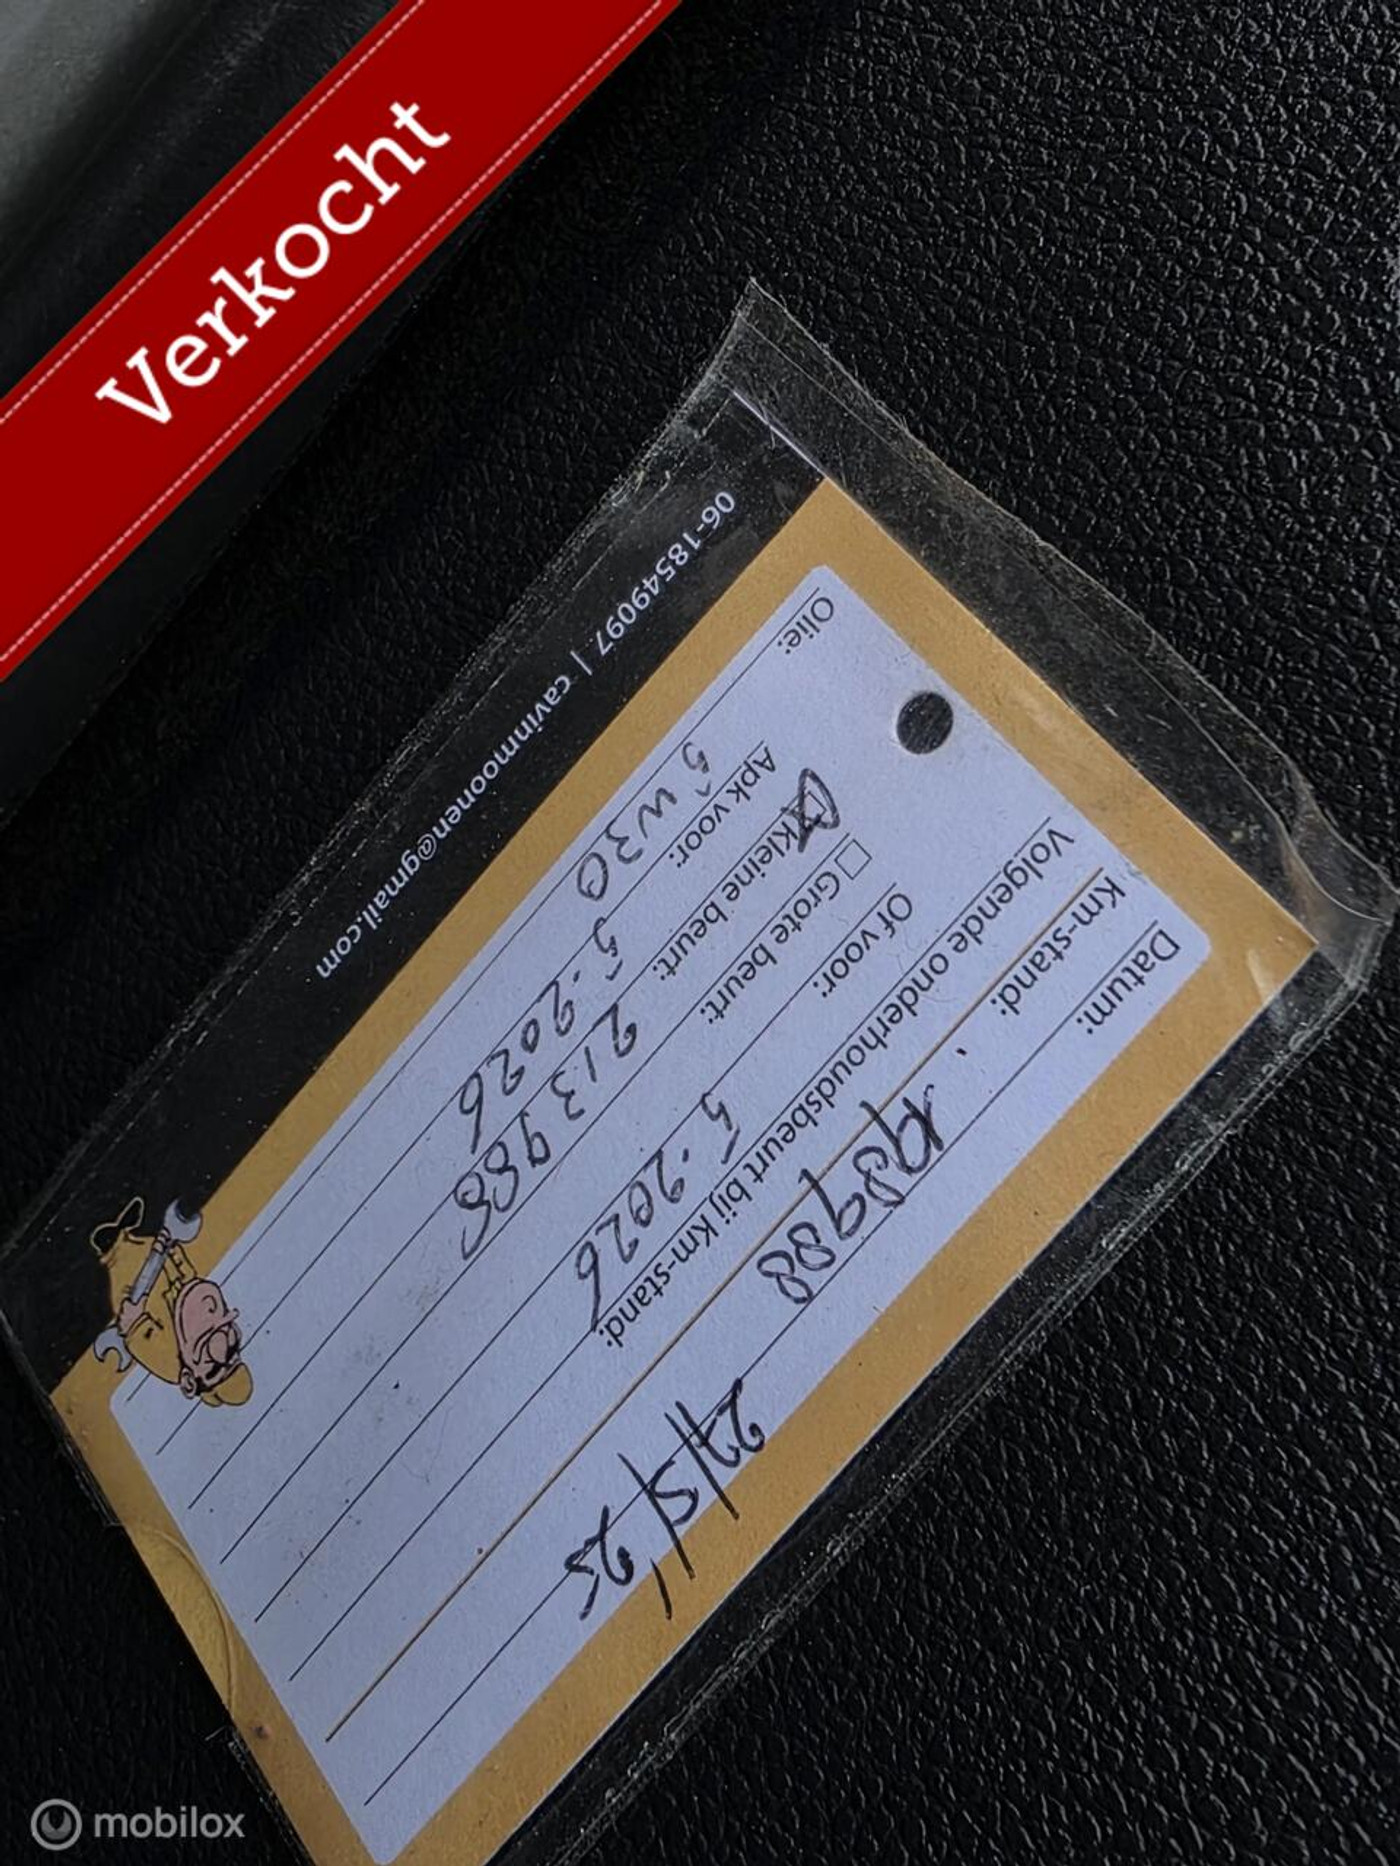 Verkocht
Datum: 27/5/25
Km-stand: 198988
Volgende onderhoudsbeurt bij Km-stand:
Of voor: 5-2026
Grote beurt:
Kleine beurt: 213988
Apk voor: 5-2026
Olie: 5w30
06-18549097 | cavinmoonen@gmail.com
mobilox